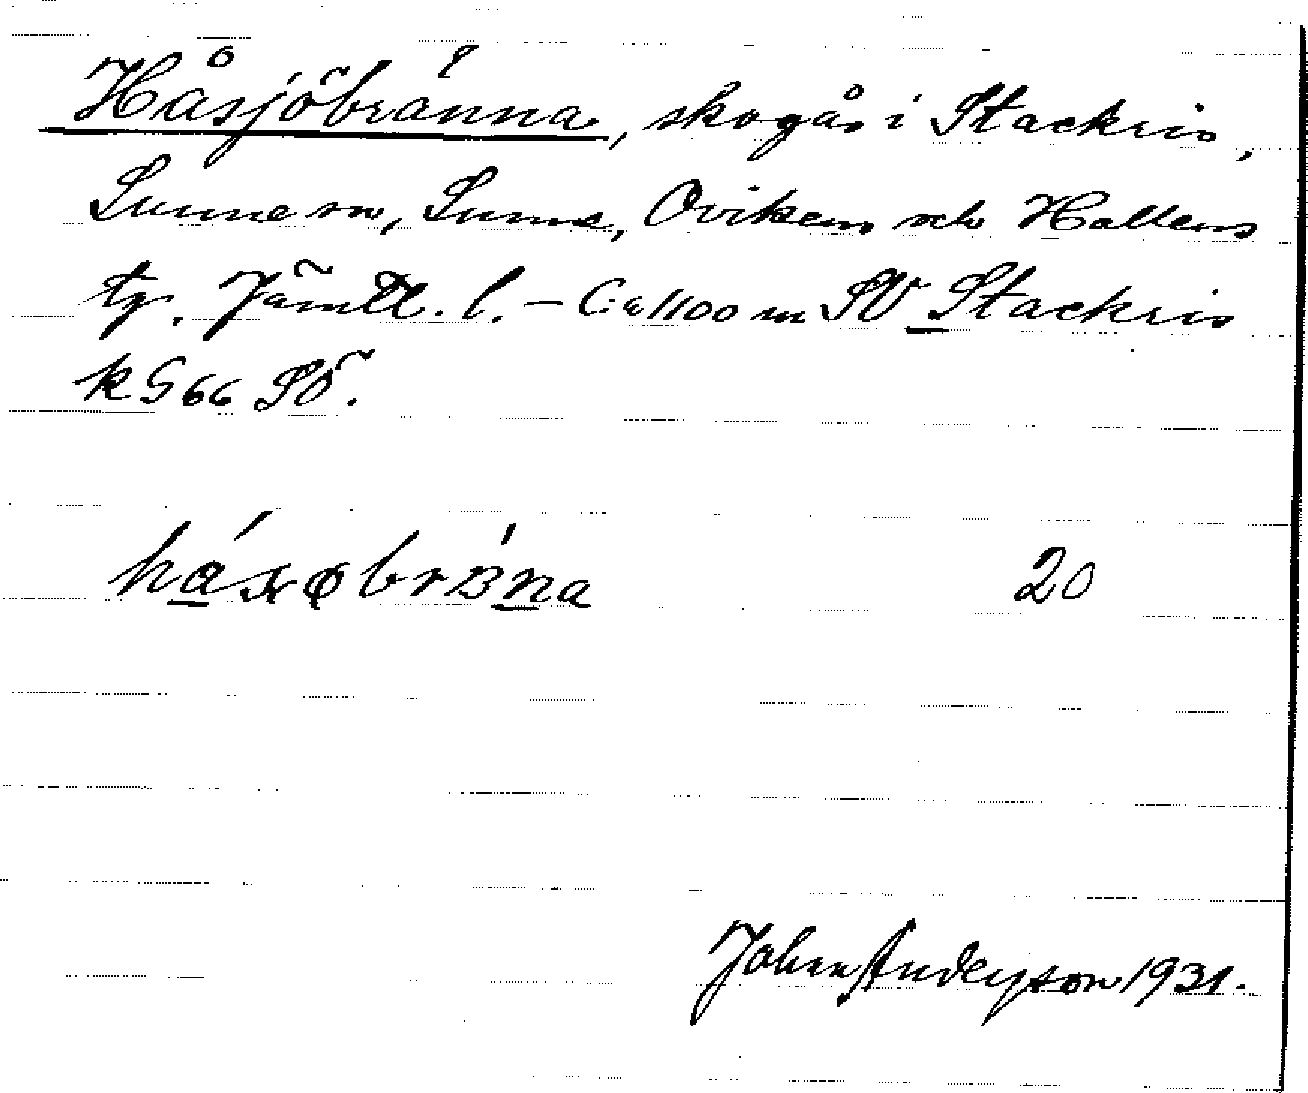 Håsjöbränna, skogås i Stackris,
Sunne sn, Sunne, Ovikens och Hallens
tg. Jämtl. l. – C:a 1100 m SV Stackris
k G 66 SÖ.
20
John Anderson 1931.